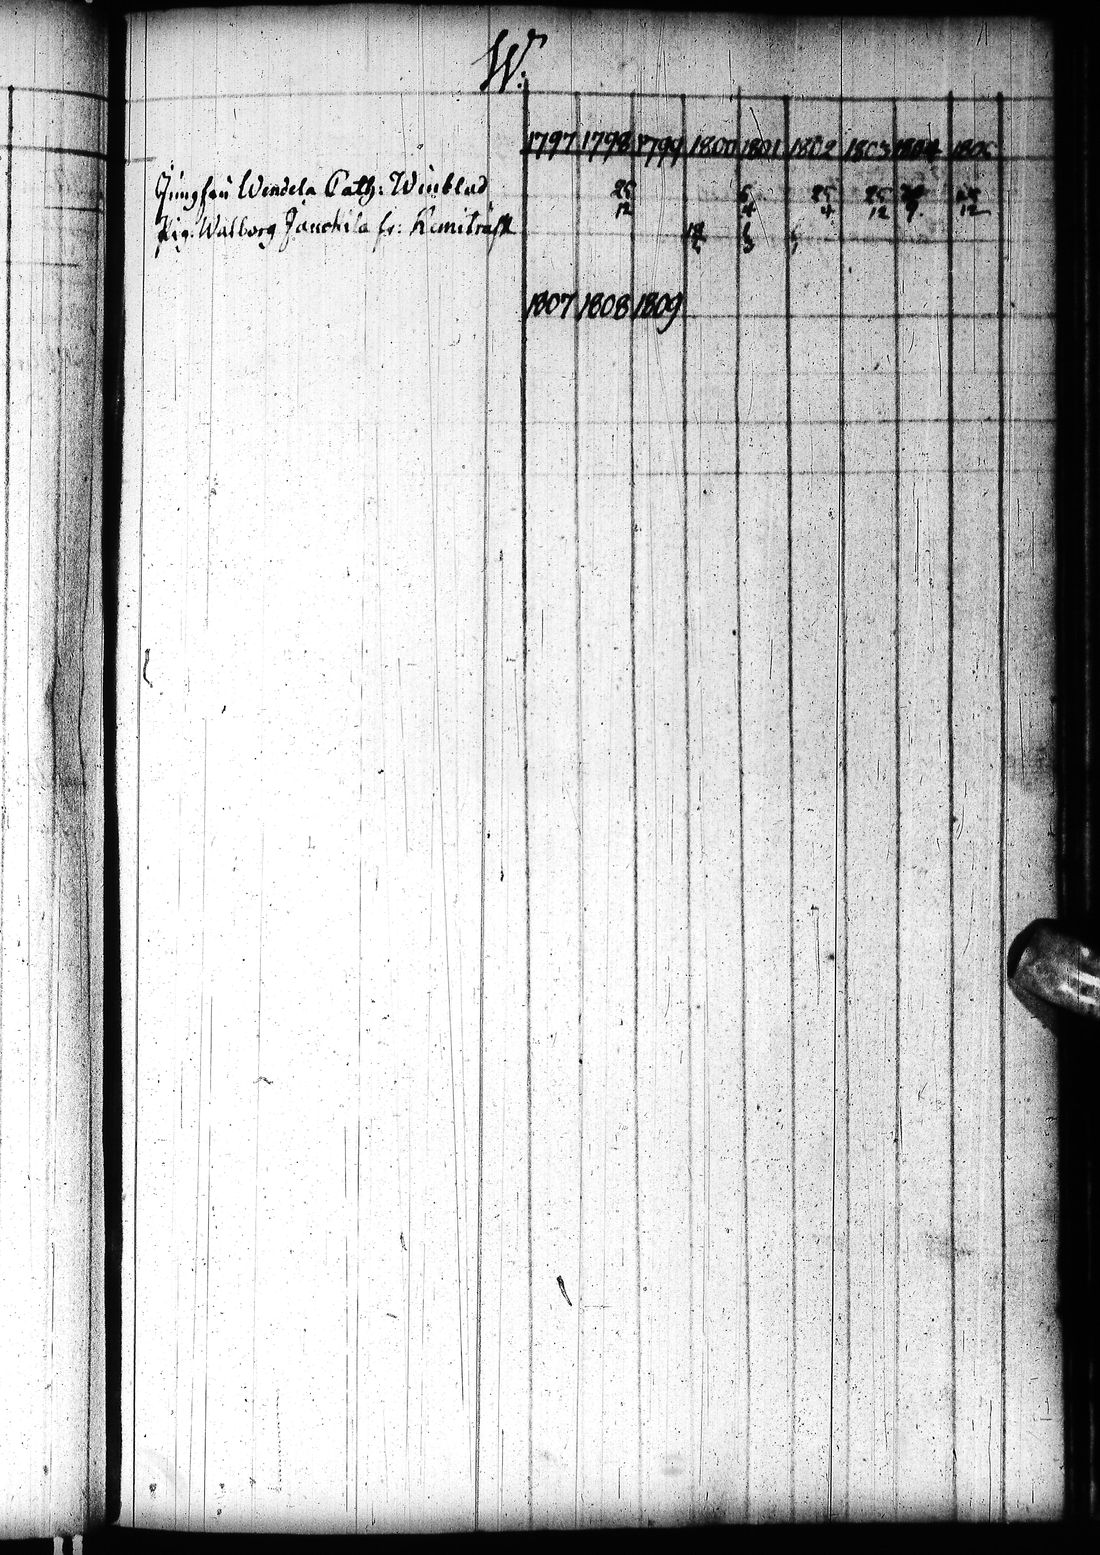 W.
1797 1798 1799 1800 1801 1802 1803 1804 1806
Jungfru Wendela Cath: Winblad 25/12 6/4 25/4 25/12 25/12
Pig: Walborg Jauckila fr: Kemiträsk
1807 1808 1809